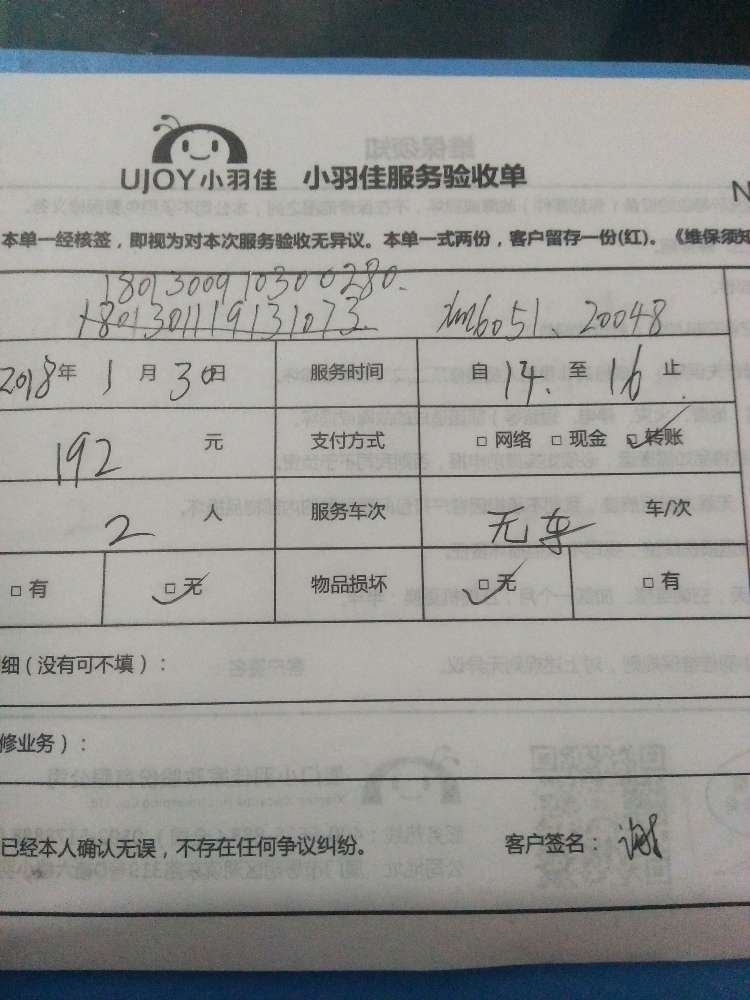 UJOY小羽佳 小羽佳服务验收单
N
本单一经核签，即视为对本次服务验收无异议。本单一式两份，客户留存一份(红)。《维保须知
1801300910300280.
180130111913​1073 6051、20048
2018年 1月30日 服务时间 自14.至16止
192元 支付方式 □ 网络 □ 现金 □ 转账
2人 服务车次 无车 车/次
□ 有 □ 无 物品损坏 □ 无 □ 有
细（没有可不填）：
修业务）：
已经本人确认无误，不存在任何争议纠纷。 客户签名：谢